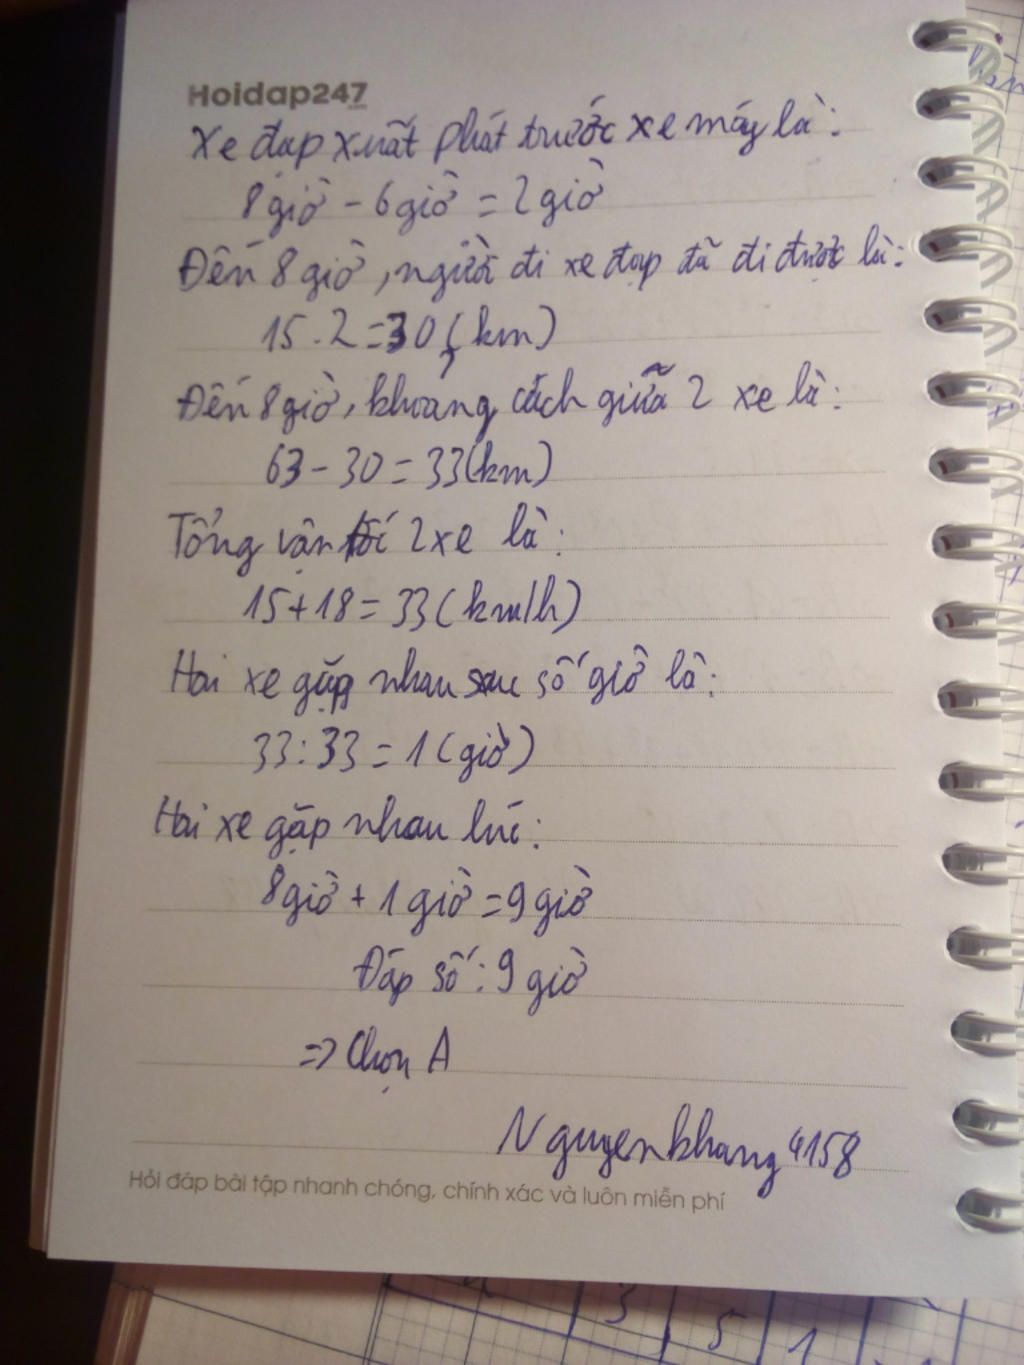 Hoidap247
Xe đạp xuất phát trước xe máy là:
8 giờ - 6 giờ = 2 giờ
Đến 8 giờ, người đi xe đạp đã đi được là:
15 . 2 = 30 (km)
Đến 8 giờ, khoảng cách giữa 2 xe là:
63 - 30 = 33 (km)
Tổng vận tốc 2 xe là:
15 + 18 = 33 (km/h)
Hai xe gặp nhau sau số giờ là:
33 : 33 = 1 (giờ)
Hai xe gặp nhau lúc:
8 giờ + 1 giờ = 9 giờ
Đáp số: 9 giờ
=> Chọn A
Nguyenkhang4158
Hỏi đáp bài tập nhanh chóng, chính xác và luôn miễn phí
3 5 1